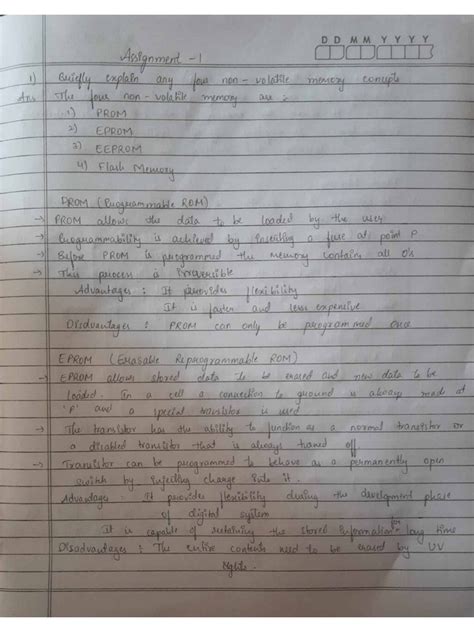 DD MM YYYY
Assignment - 1
1) Briefly explain any four non-volatile memory concepts
Ans The four non-volatile memory are :
1) PROM
2) EPROM
3) EEPROM
4) Flash Memory
PROM (Programmable ROM)
→ PROM allows the data to be loaded by the user
→ Programmability is achieved by inserting a fuse at point P
→ Before PROM is programmed the memory contains all 0's
→ This process is irreversible
Advantages : It provides flexibility
It is faster and less expensive
Disdvantages : PROM can only be programmed once
EPROM (Erasable Reprogrammable ROM)
→ EPROM allows stored data to be erased and new data to be
loaded. In a cell a connection to ground is always made at
'P' and a special transistor is used
→ The transistor has the ability to function as a normal transitor or
a disabled transitor that is always turned off
→ Transitor can be programmed to behave as a permanently open
switch by injecting charge into it.
Advantage : It provides flexibility during the development phase
of digital system
It is capable of retaining the stored information for long time
Disadvantages : The entire contents need to be erased by UV
lights.